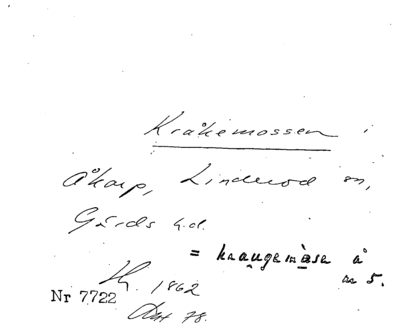 Kråkemossen i
Åkarp, Linderöd sn,
Gärds h.d.
= kraugemåsen å
m 5.
1862
Nr 7722
Akt 78.